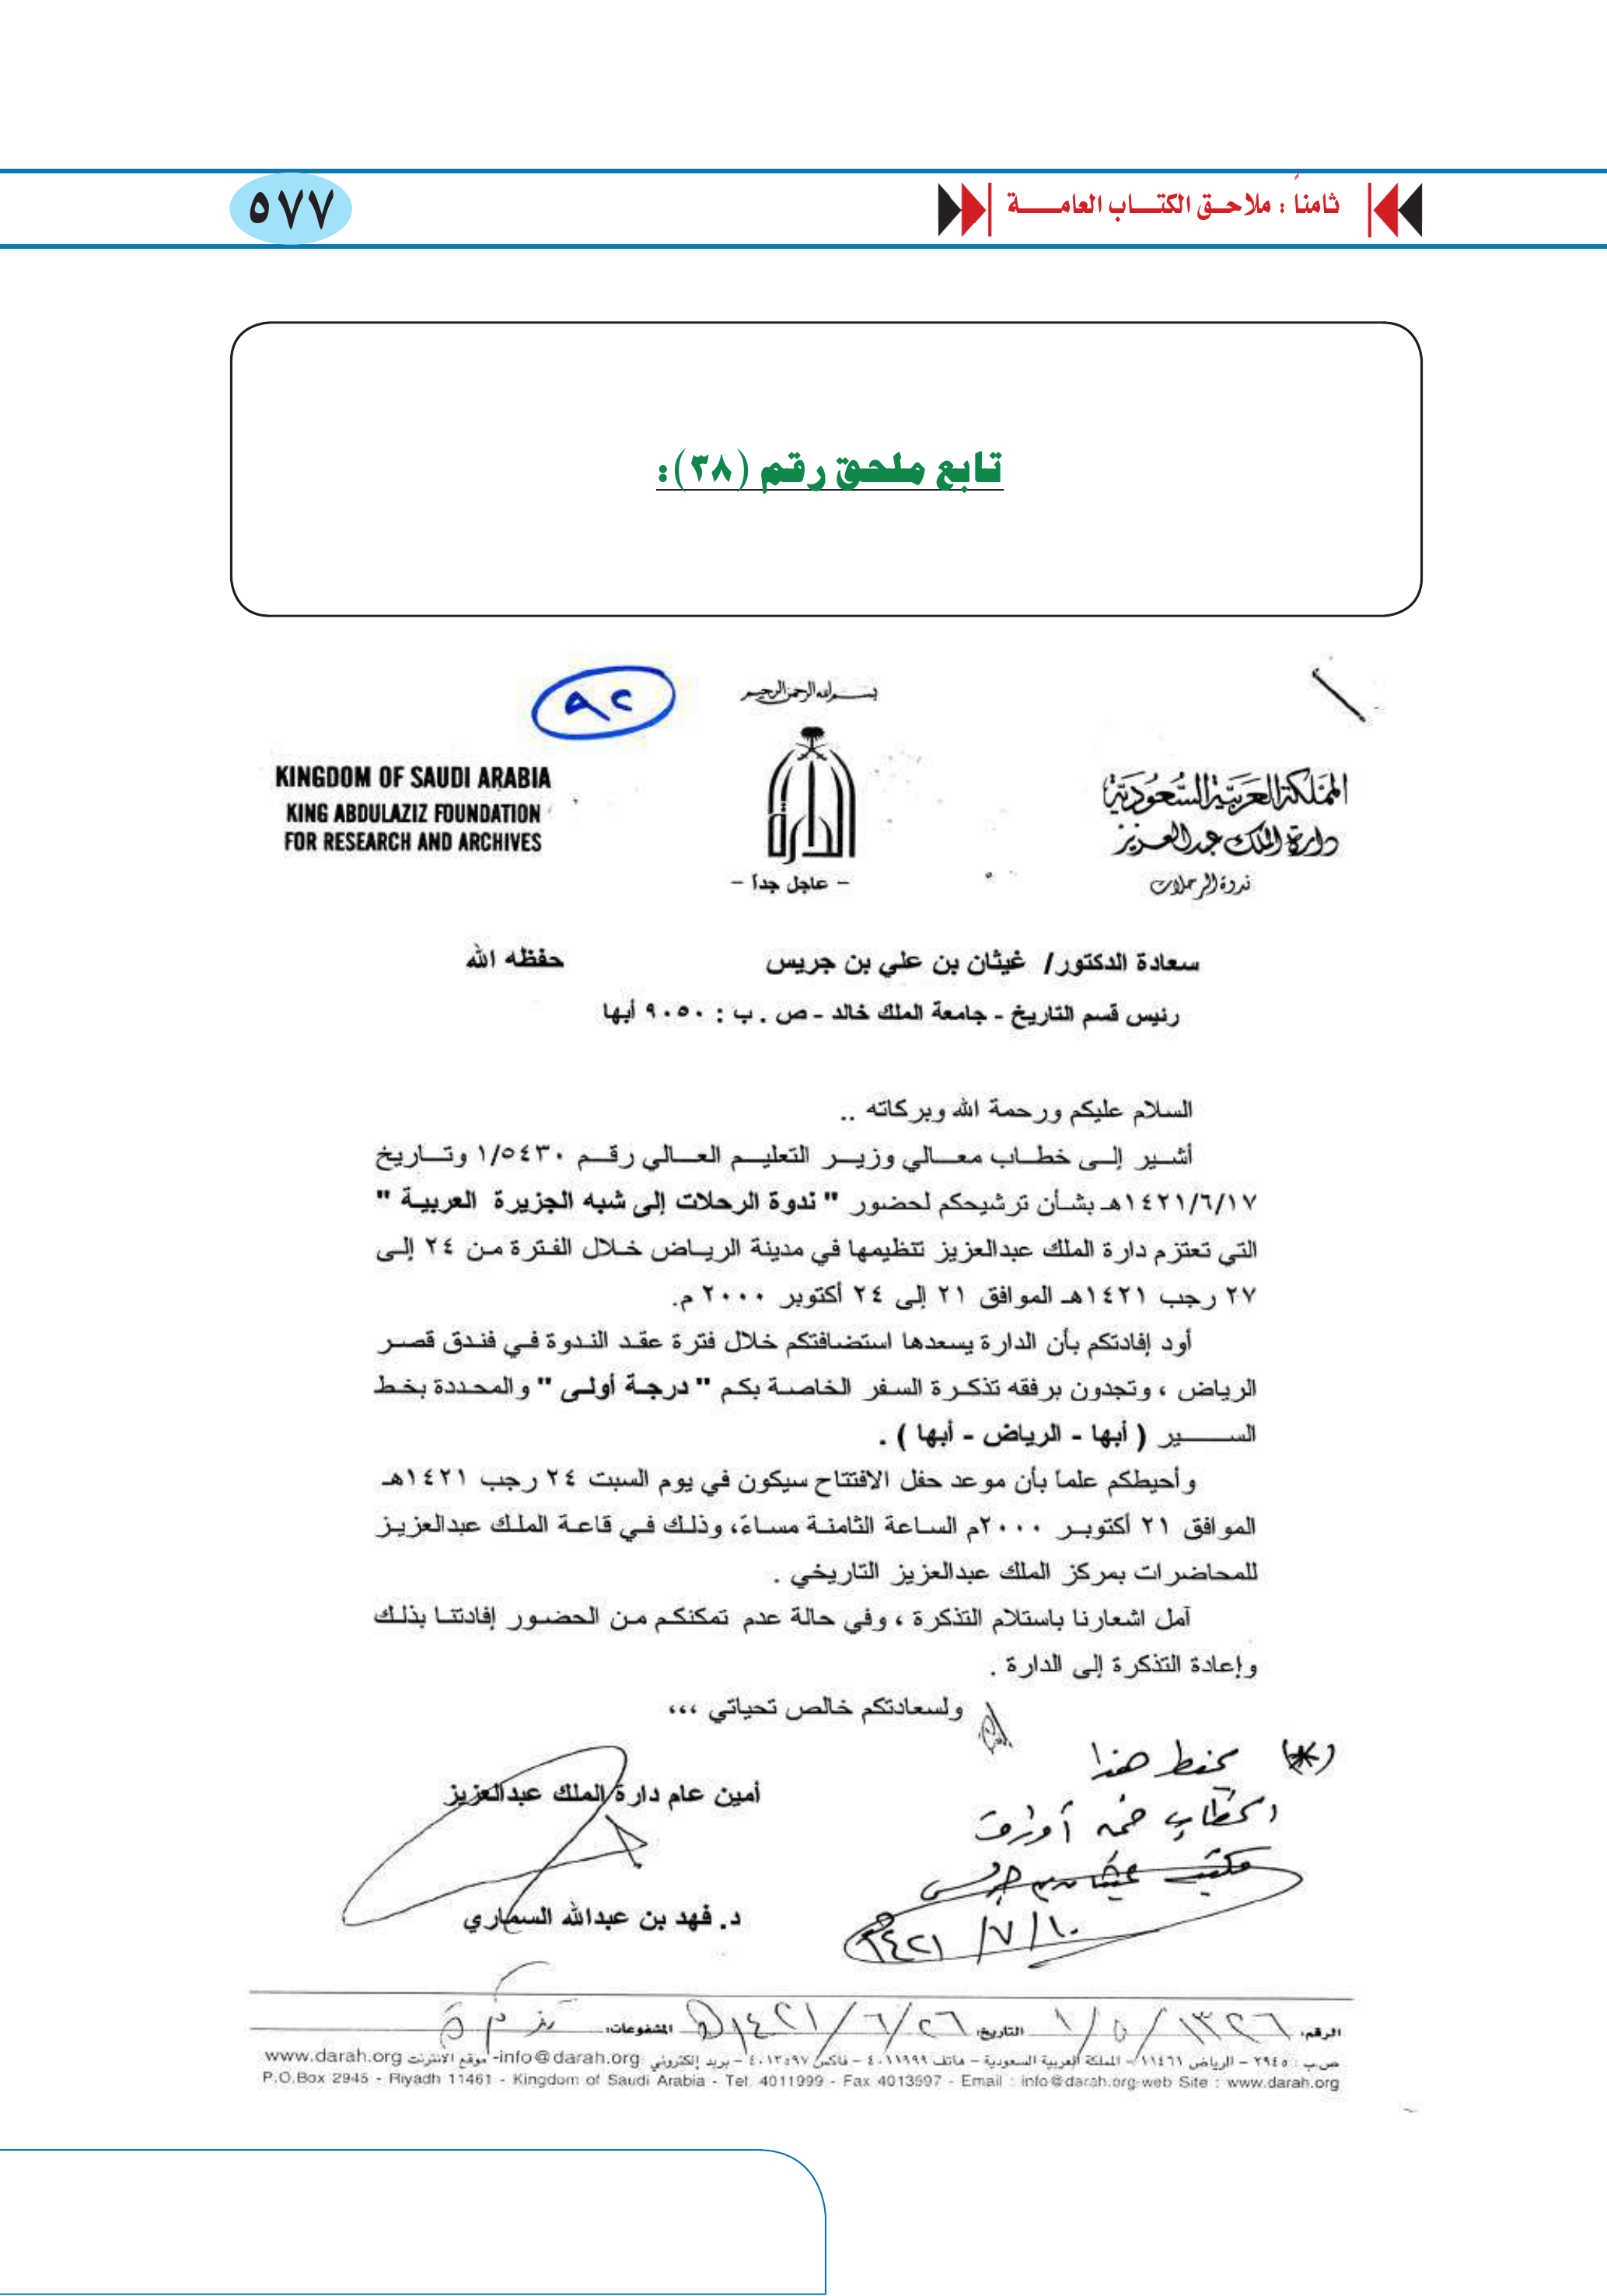 ثامناً : ملاحـق الكتـــاب العامـــــة
٥٧٧
تابع ملحق رقم (٣٨):
٩٢
بسم الله الرحمن الرحيم
المملكة العربية السعودية
دارة الملك عبدالعزيز
ندوة الرحلات
KINGDOM OF SAUDI ARABIA
KING ABDULAZIZ FOUNDATION
FOR RESEARCH AND ARCHIVES
الدارة
- عاجل جداً -
سعادة الدكتور/ غيثان بن علي بن جريس حفظه الله
رئيس قسم التاريخ - جامعة الملك خالد - ص . ب : ٩٠٥٠ أبها
السلام عليكم ورحمة الله وبركاته ..
أشير إلى خطاب معالي وزير التعليم العالي رقم ١/٥٤٣٠ وتاريخ
١٤٢١/٦/١٧هـ بشأن ترشيحكم لحضور " ندوة الرحلات إلى شبه الجزيرة العربية "
التي تعتزم دارة الملك عبدالعزيز تنظيمها في مدينة الرياض خلال الفترة من ٢٤ إلى
٢٧ رجب ١٤٢١هـ الموافق ٢١ إلى ٢٤ أكتوبر ٢٠٠٠ م.
أود إفادتكم بأن الدارة يسعدها استضافتكم خلال فترة عقد الندوة في فندق قصر
الرياض ، وتجدون برفقه تذكرة السفر الخاصة بكم " درجة أولى " والمحددة بخط
السير ( أبها - الرياض - أبها ) .
وأحيطكم علماً بأن موعد حفل الافتتاح سيكون في يوم السبت ٢٤ رجب ١٤٢١هـ
الموافق ٢١ أكتوبر ٢٠٠٠م الساعة الثامنة مساءً، وذلك في قاعة الملك عبدالعزيز
للمحاضرات بمركز الملك عبدالعزيز التاريخي .
آمل اشعارنا باستلام التذكرة ، وفي حالة عدم تمكنكم من الحضور إفادتنا بذلك
وإعادة التذكرة إلى الدارة .
ولسعادتكم خالص تحياتي ،،،
أمين عام دارة الملك عبدالعزيز
د. فهد بن عبدالله السماري
(*) يحفظ هذا
الخطاب ضمن أوراق
مكتبة غيثان بن جريس
١٤٢١/٧/١٠هـ
الرقم: ١/٥/١٣٢٦ التاريخ: ١٤٢١/٦/٢٦هـ المشفوعات: تذكرة
ص.ب : ٢٩٤٥ – الرياض ١١٤٦١ – المملكة العربية السعودية – هاتف ٤٠١١٩٩٩ – فاكس ٤٠١٣٥٩٧ – بريد إلكتروني info@darah.org- موقع الانترنت www.darah.org
P.O.Box 2945 - Riyadh 11461 - Kingdom of Saudi Arabia - Tel. 4011999 - Fax 4013597 - Email : info@darah.org-web Site : www.darah.org